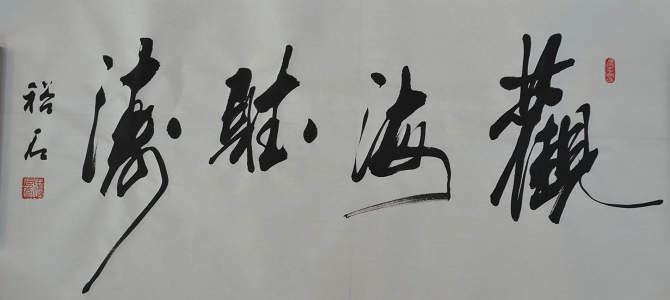 觀海聽濤
裕石